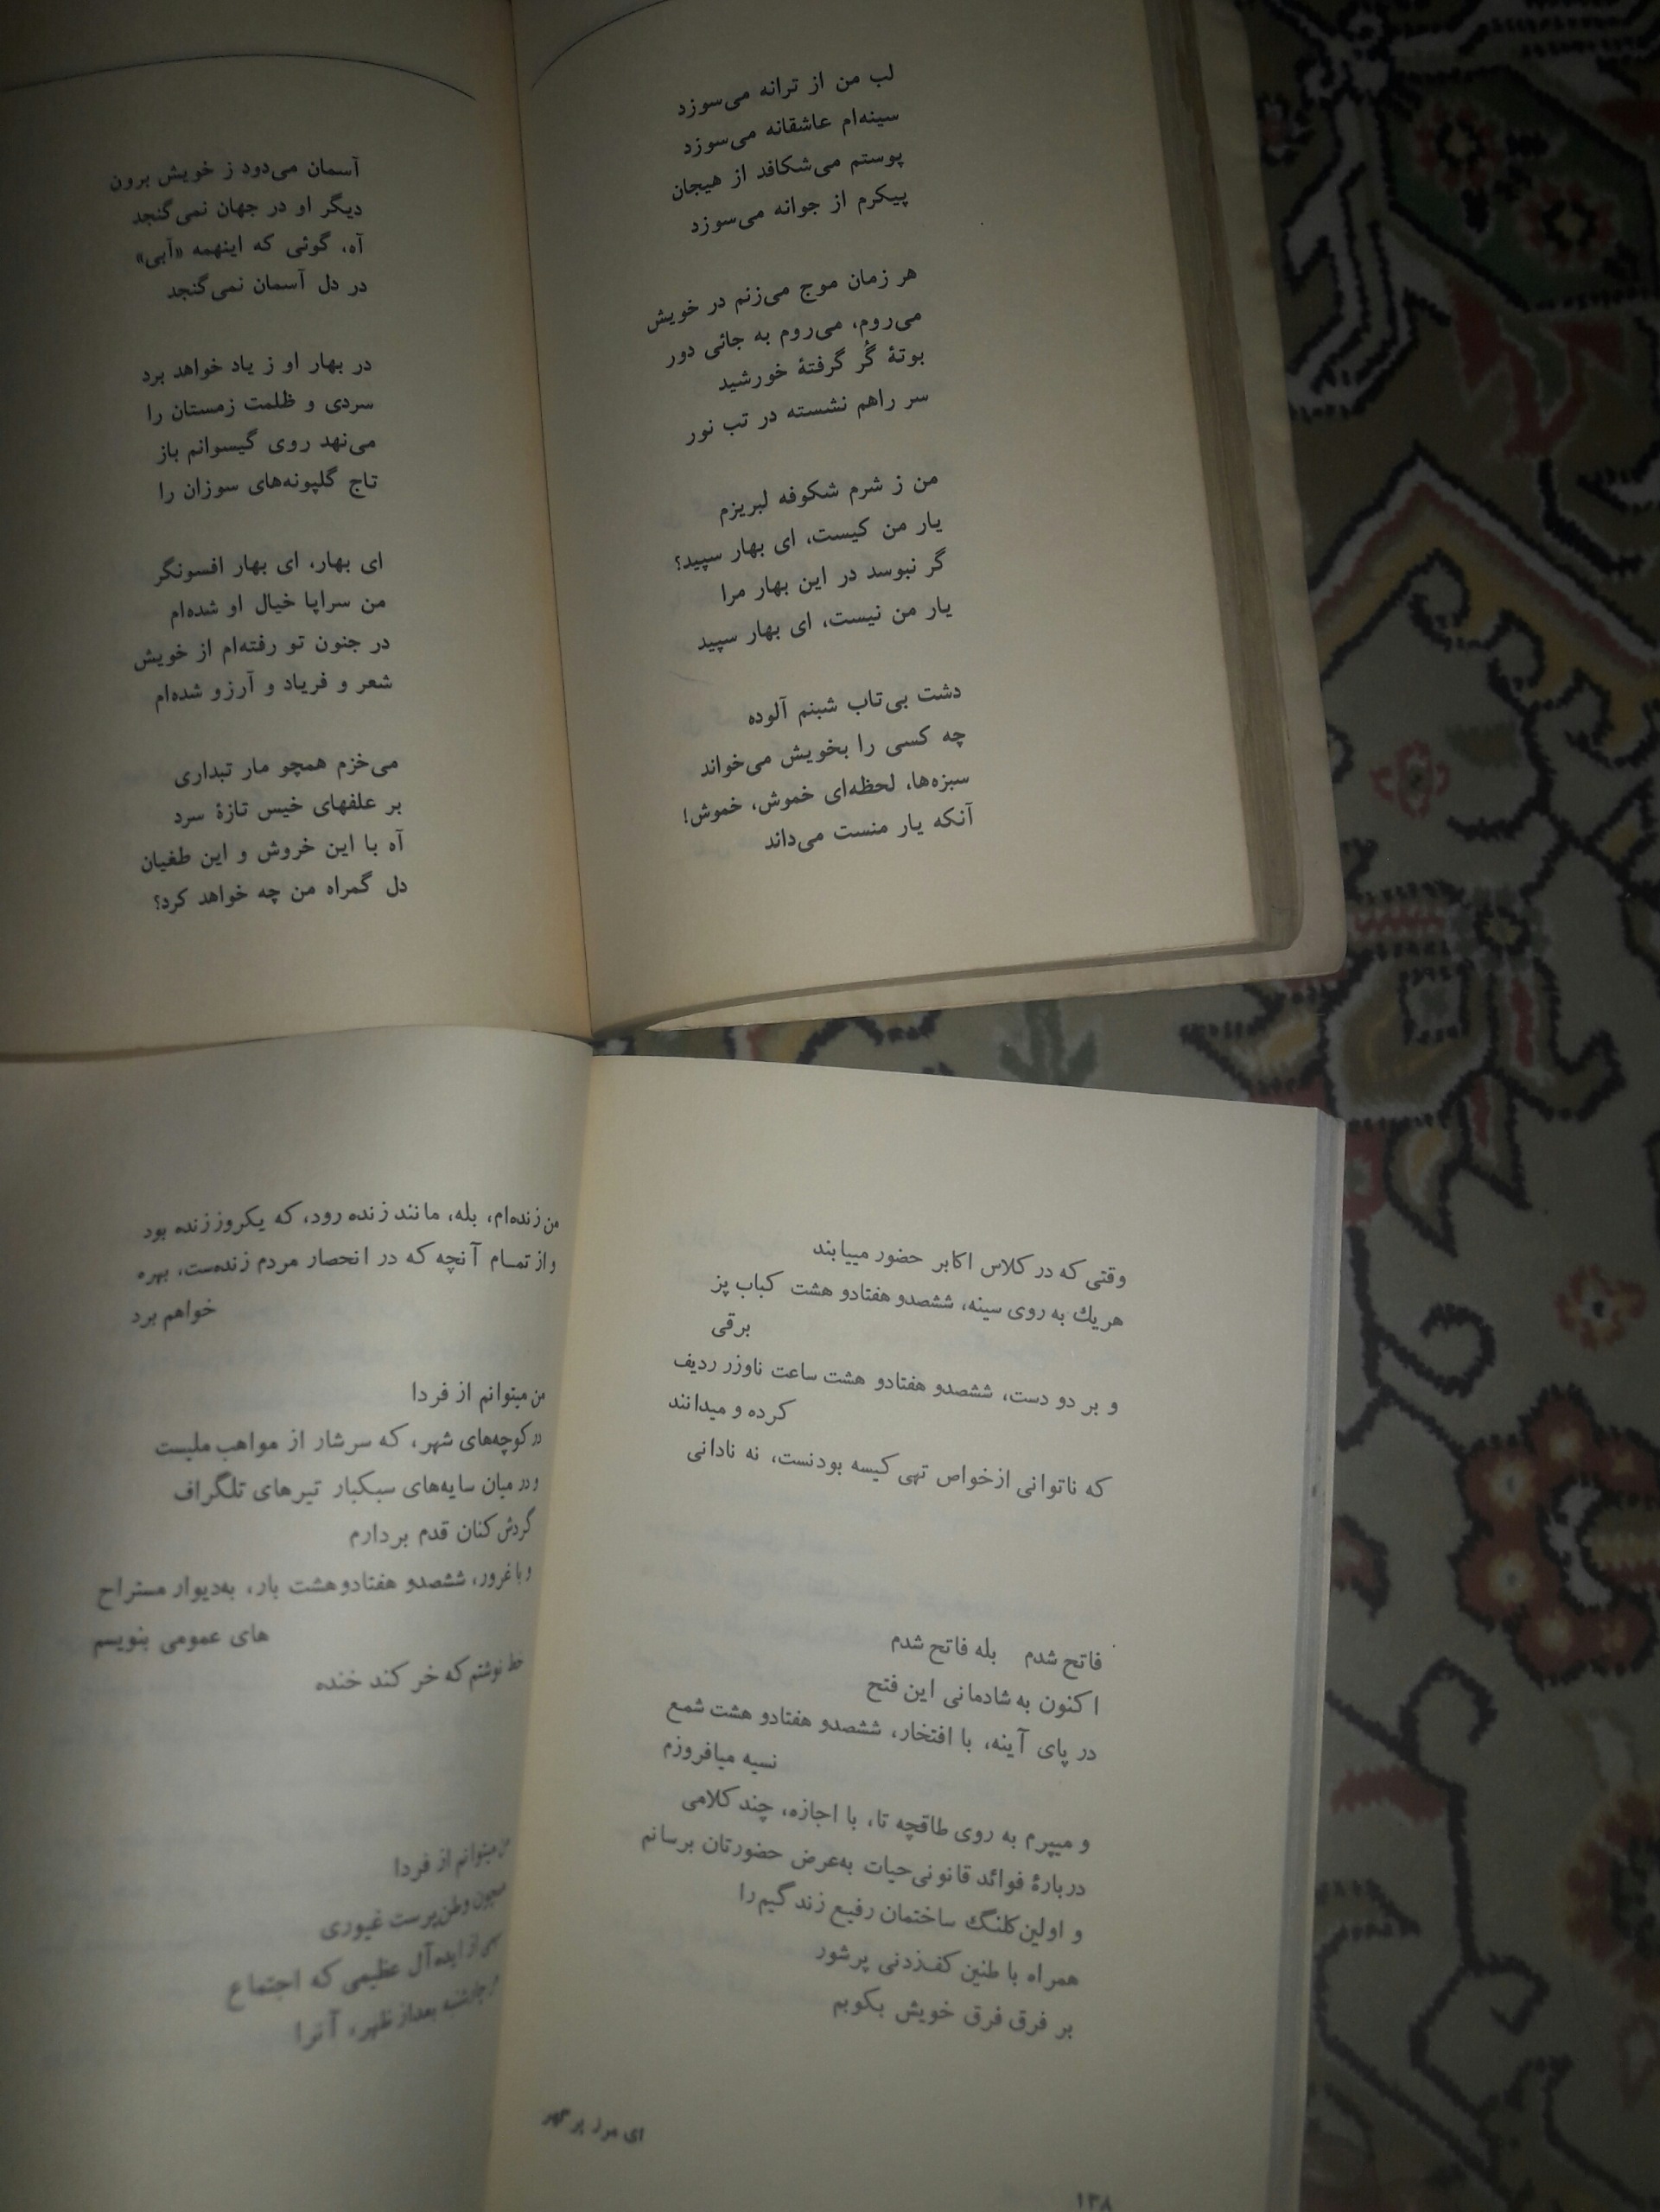 لب من از ترانه می‌سوزد
سینه‌ام عاشقانه می‌سوزد
پوستم می‌شکافد از هیجان
پیکرم از جوانه می‌سوزد
هر زمان موج می‌زنم در خویش
می‌روم، می‌روم به جائی دور
بوتهٔ گُر گرفتهٔ خورشید
سر راهم نشسته در تب نور
من ز شرم شکوفه لبریزم
یار من کیست، ای بهار سپید؟
گر نبوسد در این بهار مرا
یار من نیست، ای بهار سپید
دشت بی‌تاب شبنم آلوده
چه کسی را بخویش می‌خواند
سبزه‌ها، لحظه‌ای خموش، خموش!
آنکه یار منست می‌داند
آسمان می‌دود ز خویش برون
دیگر او در جهان نمی‌گنجد
آه، گوئی که اینهمه «آبی»
در دل آسمان نمی‌گنجد
در بهار او ز یاد خواهد برد
سردی و ظلمت زمستان را
می‌نهد روی گیسوانم باز
تاج گلپونه‌های سوزان را
ای بهار، ای بهار افسونگر
من سراپا خیال او شده‌ام
در جنون تو رفته‌ام از خویش
شعر و فریاد و آرزو شده‌ام
می‌خزم همچو مار تبداری
بر علفهای خیس تازهٔ سرد
آه با این خروش و این طغیان
دل گمراه من چه خواهد کرد؟
وقتی که در کلاس اکابر حضور مییابند
هریك به روی سینه، ششصدو هفتادو هشت کباب پز
برقی
و بر دو دست، ششصدو هفتادو هشت ساعت ناوزر ردیف
کرده و میدانند
که ناتوانی از خواص تهی کیسه بودنست، نه نادانی
فاتح شدم بله فاتح شدم
اکنون به شادمانی این فتح
در پای آینه، با افتخار، ششصدو هفتادو هشت شمع
نسیه میافروزم
و میپرم به روی طاقچه تا، با اجازه، چند کلامی
دربارهٔ فوائد قانونی حیات به‌عرض حضورتان برسانم
و اولین کلنگ ساختمان رفیع زندگیم را
همراه با طنین کف‌زدنی پرشور
بر فرق فرق خویش بکوبم
ای مرز پر گهر
۱۳۸
من زنده‌ام، بله، مانند زنده رود، که یکروز زنده بود
و از تمام آنچه که در انحصار مردم زنده‌ست، بهره
خواهم برد
من میتوانم از فردا
در کوچه‌های شهر، که سرشار از مواهب ملیست
و در میان سایه‌های سبکبار تیرهای تلگراف
گردش کنان قدم بردارم
و با غرور، ششصدو هفتادو هشت بار، به‌دیوار مستراح
های عمومی بنویسم
خط نوشتم که خر کند خنده
من میتوانم از فردا
همچون وطن‌پرست غیوری
از ایده‌آل عظیمی که اجتماع
چارشنبه بعدازظهر، آنرا